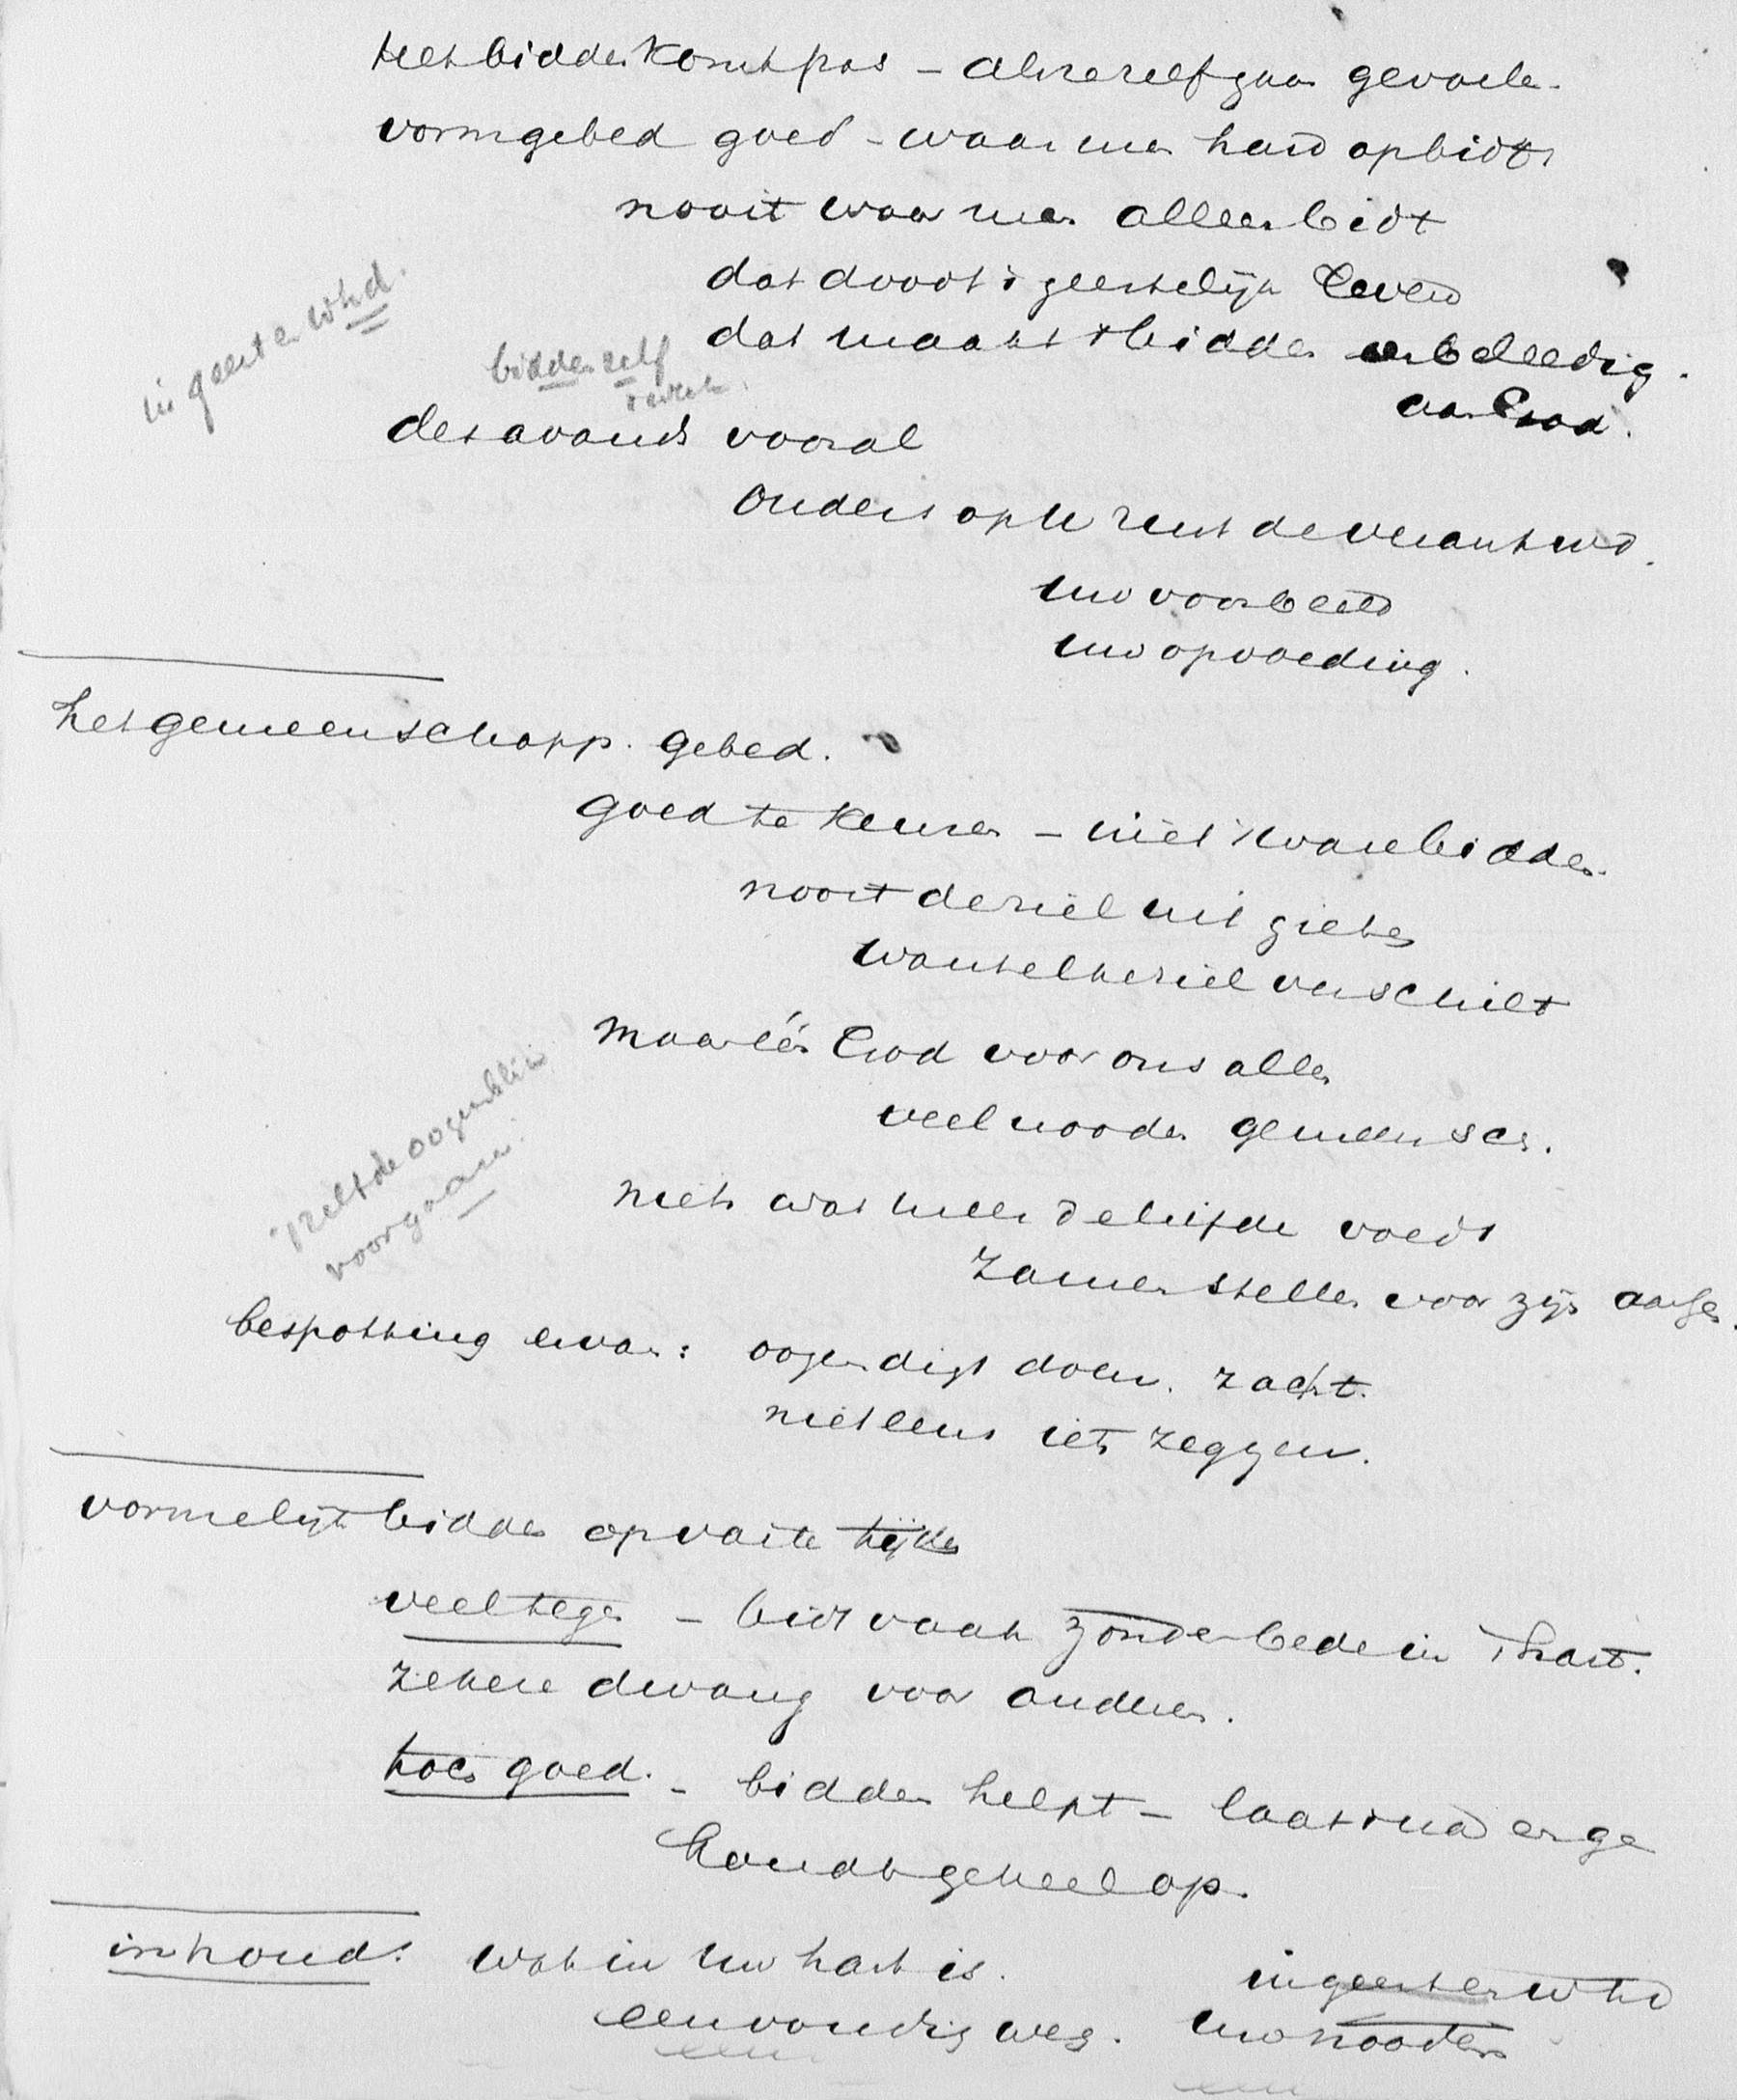 het bidden komt pas - als ze zelf gaan gevoelen.
vormgebed goed - waar men hard op bidt
nooit waar men alleen bidt
dat doodt 't geestelijk leven
in geest en whd.
dat maakt 't bidden een beleedig.
bidden zelf
aan God.
des avonds vooral
Ouders op U rust de verantwd.
uw voorbeeld
uw opvoeding.
het gemeenschapp. gebed.
goed te keuren - niet zwaar bidden
nooit de ziel uit gieten
want elke ziel verschilt
maar één God voor ons allen
veel nooden gemeensch.
niets wat meer de liefde voedt
'tzelfde oogenblik
voorgaan.
Zamen stellen voor zijn aange.
bespotting ervan: oogen digt doen. zacht.
niet eens iets zeggen.
vormelijk bidden op vaste tijden
veel tegen - bidt vaak zonder bede in 't hart.
zekere dwang voor anderen.
toch goed. - bidden helpt - laat 't na en ge
houdt geheel op.
inhoud. wat in uw hart is. in geest en whd
eenvoudig weg. uw nooden